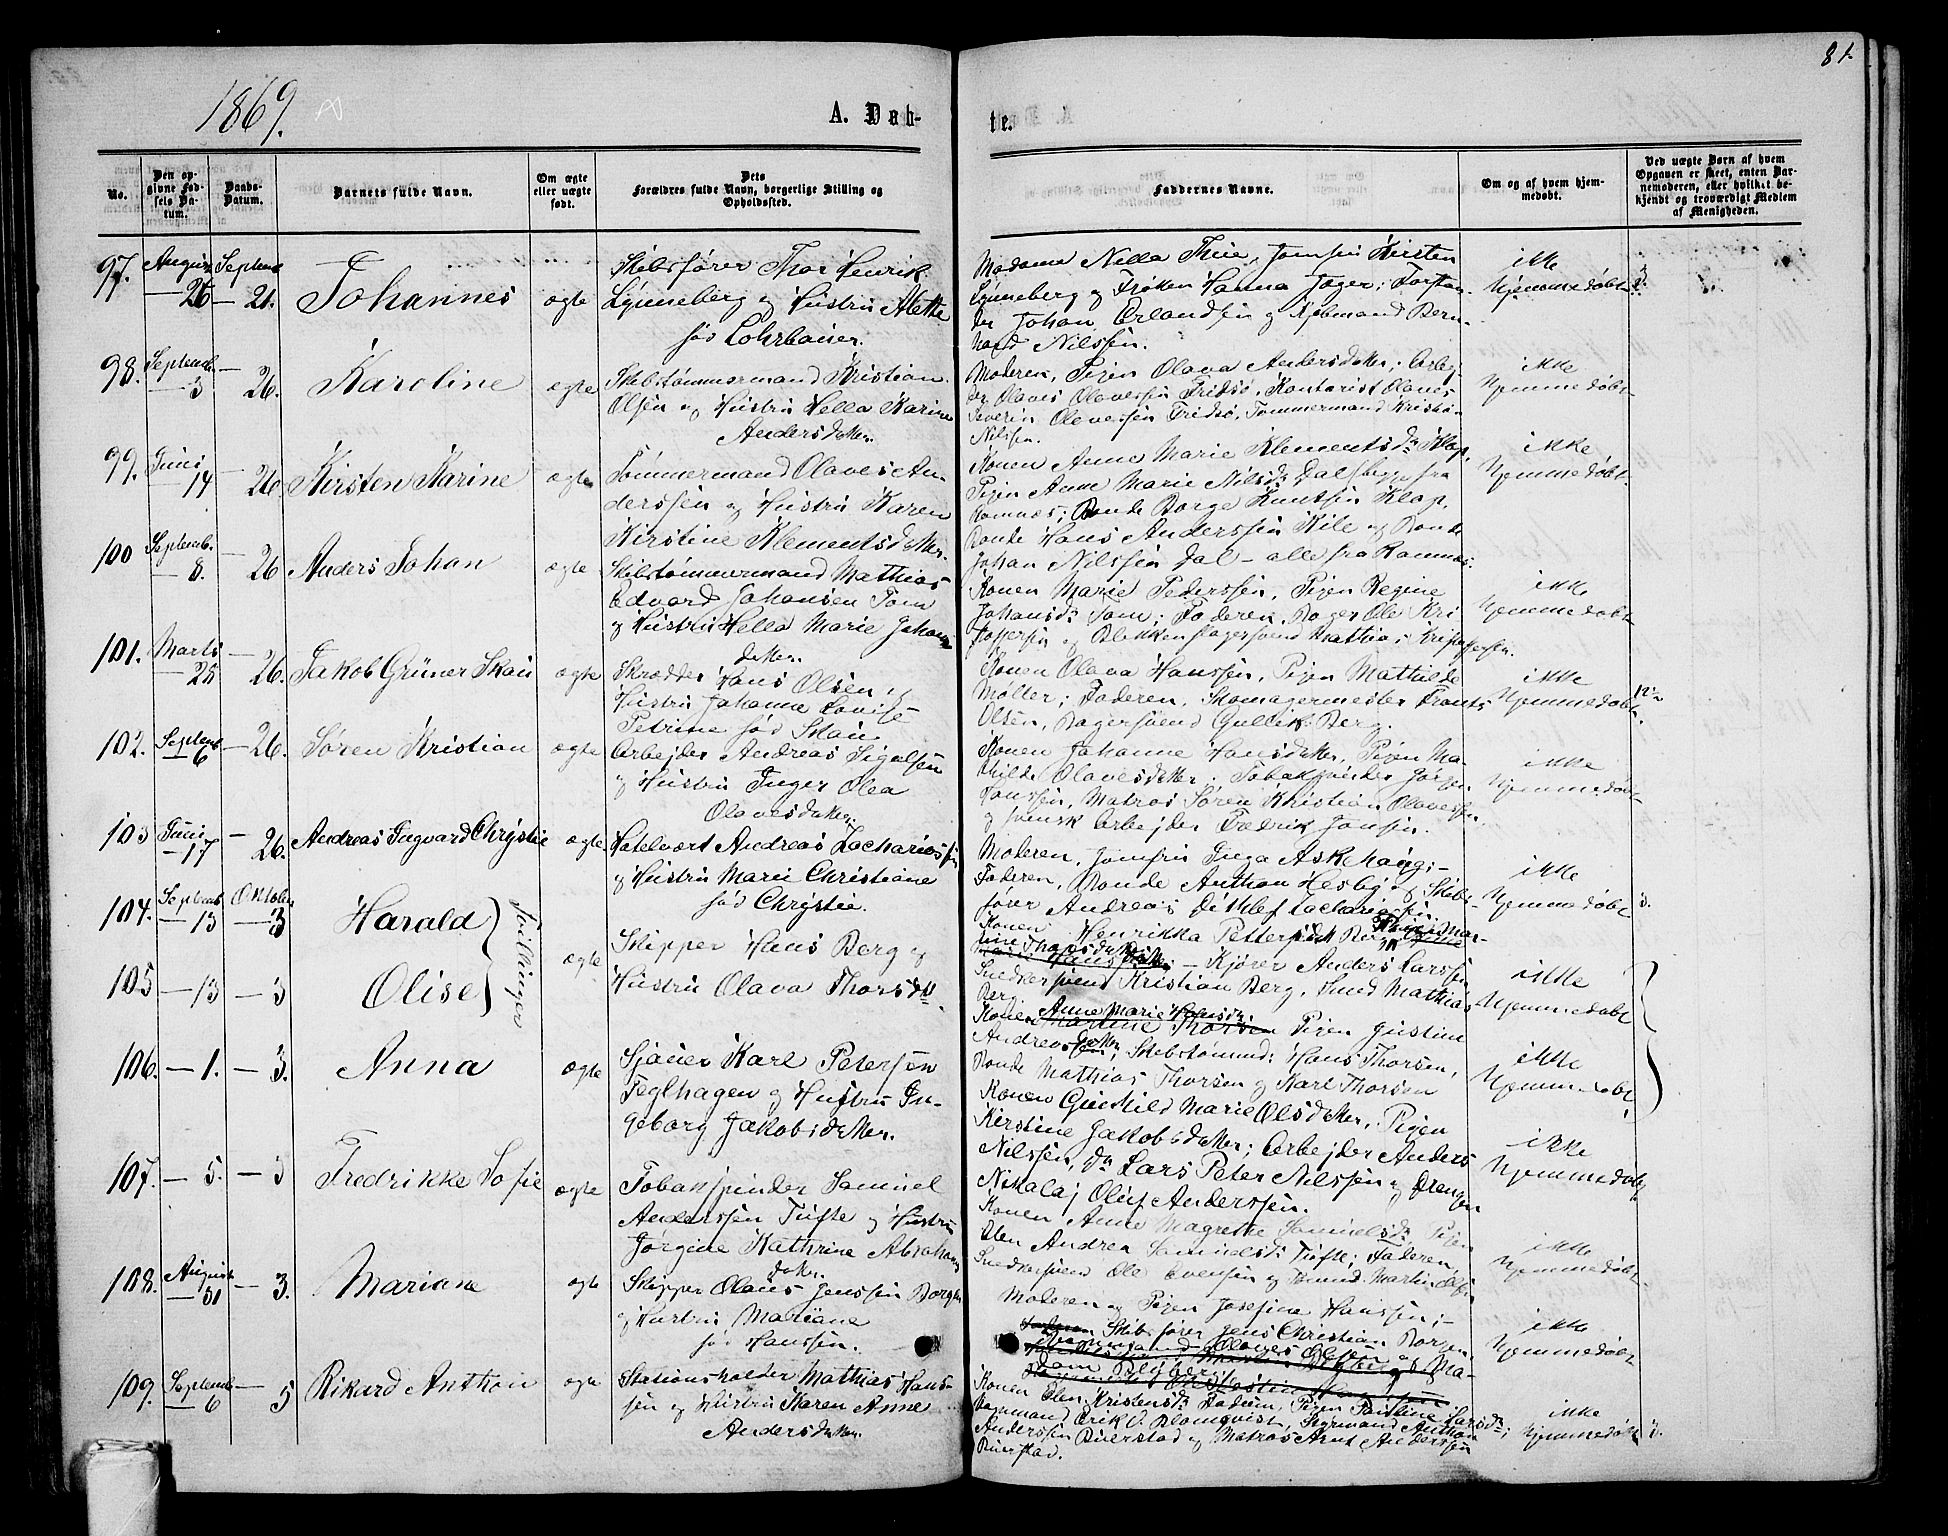 81.
1869.
A. Døb-
te.
No.
Den opgivne Fødsels Datum.
Daabs-Datum.
Barnets fulde Navn.
Om ægte eller uægte født.
Dets Forældres fulde Navn, borgerlige Stilling og Opholdssted.
Faddernes Navne.
Om og af hvem hjemmedøbt.
Ved uægte Børn af hvem Opgaven er skeet, enten Barnemoderen, eller hvilket bekjendt og troværdigt Medlem af Menigheden.
97. August 26 Septemb 26. Johannes ægte
Skibsfører Thor Henrik
Lynneberg og Hustru Alette
fød Lohrbauer.
Madame Nilla Thue, Jomfru Kirsten
Lynneberg og Frøken Hanna Jæger; Forstan-
der Johan Erlandsen og Kjøbmand Bern-
hard Nilssen.
ikke
hjemmedøbt
98. Septemb. 3 — 26. Karoline ægte
Skibstømmermand Kristian
Olsen og Hustru Hella Karine
Andersdatter.
Moderen, Pigen Olava Andersdatter; Arbej-
der Olaves Olavessen Fridsø, Kontorist Olaves
Severin Olavessen Fridsø, Tømmermand Kristian
Nilssen.
ikke
hjemmedøbt
99. Juni 14 — 26 Kirsten Karine ægte
Tømmermand Olaves An-
derssen og Hustru Karen
Kirstine Klementsdatter.
Konen Anne Marie Klementsdr Klap,
Pigen Anne Marie Nilsdr Dal, begge fra
Ramnæs; Bonde Borge Knutsen Klap,
Bonde Hans Anderssen Kile og Bonde
Johan Nilssen Dal — alle fra Ramnæs.
ikke
hjemmedøbt.
100 Septemb. 8. — 26 Anders Johan ægte
Skibstømmermand Mathias
Edvard Johansen Tom
og Hustru Hella Marie Johans-
datter.
Konen Marie Pederssen, Pigen Regine
Johansdr Tom; Faderen, Bager Ole Kri
stoffersen og Blikkenslagersvend Mathias Kristoffersen.
ikke
hjemmedøbt
101. Marts 25 — 26. Jakob Grüner Skau ægte
Skrædder Hans Olsen og
Hustru Johanne Lovise
Petrine fød Skau
Konen Olava Hanssen, Pigen Mathilde
Møller; Faderen, Skomagermester Frants
Olsen, Bagersvend Gullik Berg.
ikke
hjemmedøbt.
102. Septemb 6 — 26. Søren Kristian ægte
Arbejder Andreas Sigalsen
og Hustru Inger Olea
Olavesdatter.
Konen Johanne Hansdatter, Pigen Ma-
thilde Olavesdatter; Tobakspinder Jørgen
Hanssen, Matros Søren Kristian Olavessen
og svensk Arbejder Fredrik Jonsen.
ikke
hjemmedøbt
103 Juni 17 — 26. Andreas Ingvard Christie ægte
Hotelvært Andreas Zachariassen
og Hustru Marie Christiane
fød Christie.
Moderen, Jomfru Inga Askehaug;
Faderen, Bonde Anthon Hesby og Skibs-
fører Andreas Ditlef Zachariassen.
ikke
hjemmedøbt
104. Septemb 13 Oktober 3 Harald
105 — 13 — 3 Olise
Tvillinger
ægte
Skipper Hans Berg og
Hustru Olava Thorsdtr
Konen Henrikka Petterssen Berg, Pigen Mar-
tine Thorsdatter — Kjører Anders Larssen,
Snedkersvend Kristian Berg, Smed Mathias
Berg.
Konen Anne Marie Hansdr. Pigen Justine
Andreasdatter; Skibstømmd: Hans Thorsen,
Bonde Mathias Thorsen og Karl Thorsen
ikke
hjemmedøbt
106. — 1. — 3. Anna ægte
Sjauer Karl Petersen
Teglhagen og Hustru In-
geborg Jakobsdatter.
Konen Gunhild Marie Olsdatter, Pigen
Kirstine Jakobsdatter; Arbejder Anders
Nilssen, do Lars Peter Nilssen og Drengen
Nikolaj Oluf Anderssen.
ikke
hjemmedøbt
107. — 5. — 3 Fredrikke Sofie ægte
Tobakspinder Samuel
Anderssen Tufte og Hustru
Jørgine Kathrine Abrahams
datter.
Konen Anne Magrethe Samuelsdr, Pigen
Elen Andrea Samuelsdr Tufte; Faderen,
Snedkersvend Ole Evensen og Martin Olsen
ikke
hjemmedøbt
108. August 31 — 3. Mariane ægte
Skipper Olaus Jenssen Borgen
og Hustru Mariane
fød Hanssen.
Moderen og Pigen Josefine Hanssen;
Skibsfører Jens Christian Borgen,
Olaves Olsen og Ma-
ikke
hjemmedøbt
109. Septemb 6 — 5 Rikard Anthon ægte
Stationsholder Mathias Hans-
sen og Hustru Karen Anne
Andersdatter.
Konen Elen Kristensdr Pigen Pauline Larsdr;
Erik O. Blomqvist, Styrmand Anthon
Anderssen Buerstad og Matros Arnt Anderssen
Buerstad.
ikke
hjemmedøbt